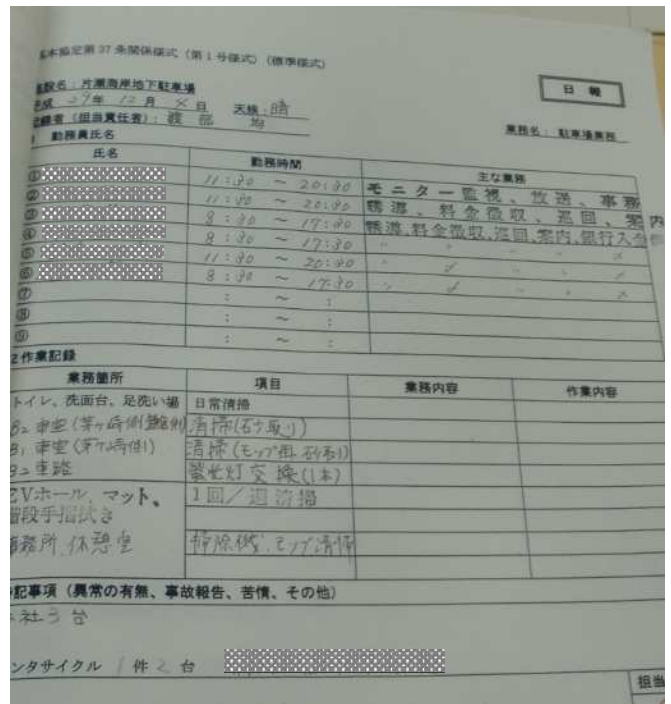 本協定第37条関係様式（第1号様式）（標準様式）
日報
施設名：片瀬海岸地下駐車場
平成 29年 12月 日 天候：晴
記録者（担当責任者）：渡部 均
業務名：駐車場業務
勤務員氏名
氏名 勤務時間 主な業務
① 11:30 ～ 20:30 モニター監視、放送、事務
② 11:30 ～ 20:30 誘導、料金徴収、巡回、案内
③ 8:30 ～ 17:30 誘導、料金徴収、巡回、案内、銀行入金
④ 8:30 ～ 17:30 〃 〃 〃 〃
⑤ 11:30 ～ 20:30 〃 〃 〃 〃
⑥ 8:30 ～ 17:30
⑦ : ～ :
⑧ : ～ :
⑨ : ～ :
2 作業記録
業務箇所 項目 業務内容 作業内容
トイレ、洗面台、足洗い場 日常清掃
B2 車室（茅ヶ崎側 側） 清掃（砂取り）
B1 車室（茅ヶ崎側） 清掃（モップ 砂取り）
B2 車路 蛍光灯交換（1本）
EVホール、マット、 1回／週清掃
階段手摺拭き
事務所、休憩室 掃除機、モップ清掃
記事項（異常の有無、事故報告、苦情、その他）
社3台
ンタサイクル 1件2台
担当